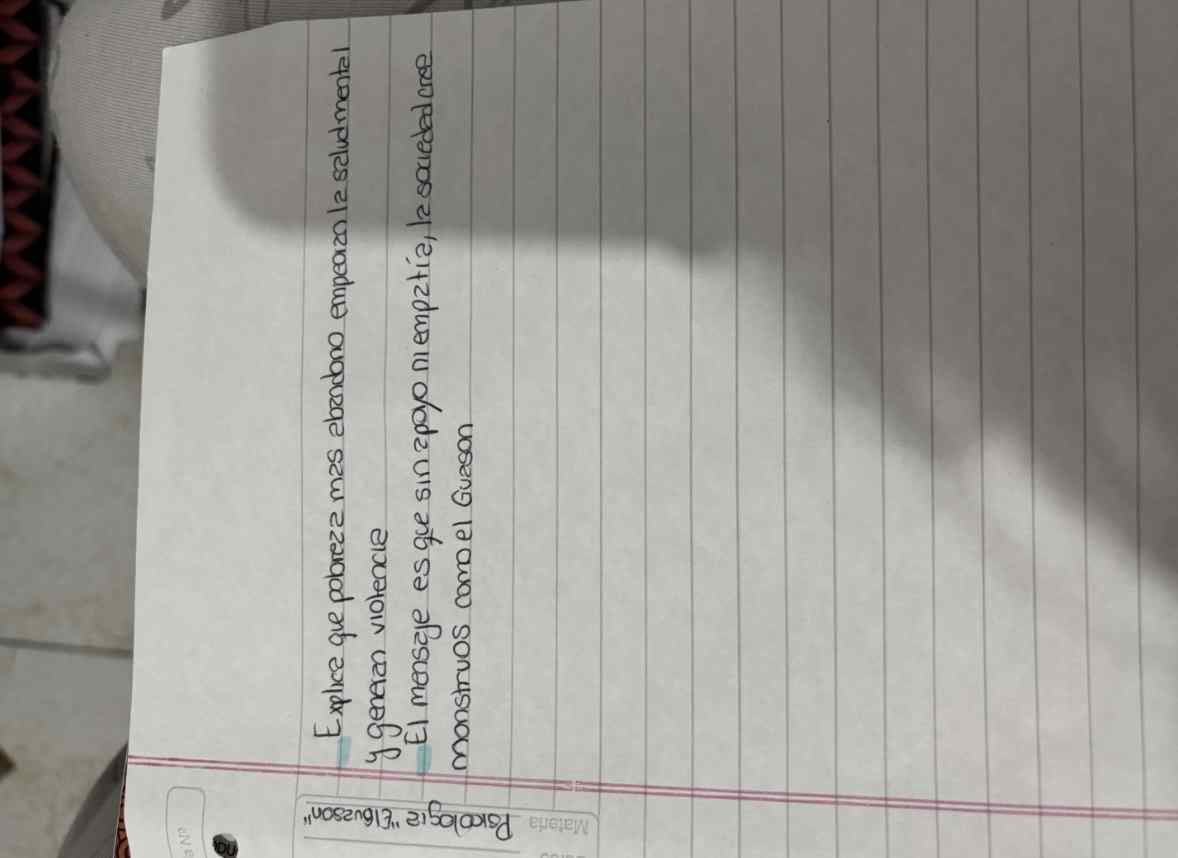 Materia Psicologia "El Guason"
Explica que pobreza mas abandono empeoran la salud mental
y generan violencia
El mensaje es que sin apoyo ni empatía, la sociedad cree
monstruos como el Guason